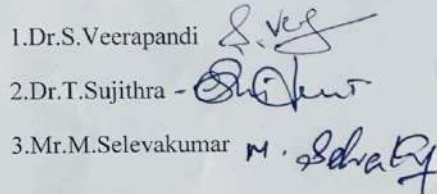 1.Dr.S.Veerapandi S.Vey
2.Dr.T.Sujithra -
3.Mr.M.Selevakumar M.